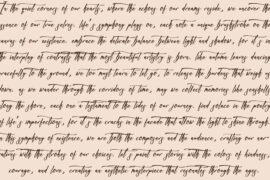 In the quiet corners of our hearts, where the echoes of our dreams reside, we uncover the
essence of our true selves. life's symphony plays on, each note a unique brushstroke on the
canvas of our existence. embrace the delicate balance between light and shadow, for it's in
the interplay of contrasts that the most beautiful artistry is born. like autumn leaves dancing
gracefully to the ground, we too must learn to let go, to release the burdens that weigh us
down. as we wander through the corridors of time, may we collect memories like seashells
along the shore, each one a testament to the tides of our journey. find solace in the poetry
of life's imperfections, for it's the cracks in the facade that allow the light to shine through.
in this symphony of existence, we are both the composers and the audience, crafting our nar-
ratives with the strokes of our choices. let's paint our stories with the colors of kindness,
courage, and love, creating an aesthetic masterpiece that resonates through the ages.